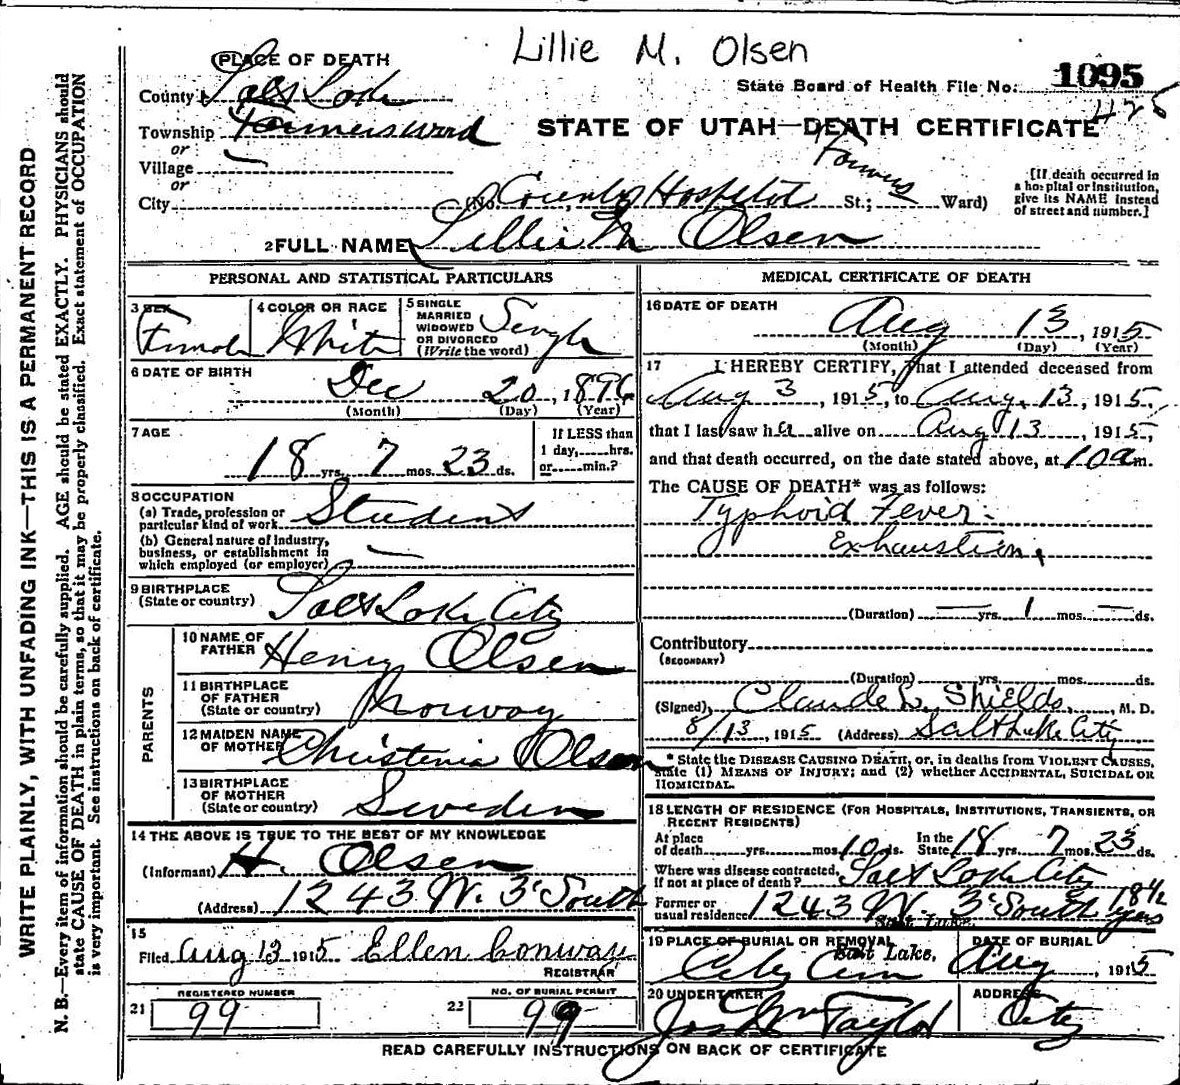 Lillie M. Olsen
PLACE OF DEATH
State Board of Health File No. 1095
County Salt Lake
Township Farmers Ward
STATE OF UTAH—DEATH CERTIFICATE
or
Village
or
City (No. County Hospital St.; Farmers Ward)
[If death occurred in a hospital or institution, give its NAME instead of street and number.]
2 FULL NAME Lillie M Olsen
PERSONAL AND STATISTICAL PARTICULARS
3 SEX Female
4 COLOR OR RACE White
5 SINGLE MARRIED WIDOWED OR DIVORCED (Write the word) Single
6 DATE OF BIRTH Dec 20, 1896
(Month) (Day) (Year)
7 AGE 18 yrs. 7 mos. 23 ds.
If LESS than 1 day, hrs. or min.?
8 OCCUPATION
(a) Trade, profession or particular kind of work Student
(b) General nature of industry, business, or establishment in which employed (or employer)
9 BIRTHPLACE
(State or country) Salt Lake City
PARENTS
10 NAME OF FATHER Henry Olsen
11 BIRTHPLACE OF FATHER (State or country) Norway
12 MAIDEN NAME OF MOTHER Christenia Olson
13 BIRTHPLACE OF MOTHER (State or country) Sweden
14 THE ABOVE IS TRUE TO THE BEST OF MY KNOWLEDGE
(Informant) H. Olsen
(Address) 1243 W. 3rd South
15
Filed Aug 13 1915 Ellen Conway
REGISTRAR
REGISTERED NUMBER
21 99
NO. OF BURIAL PERMIT
22 99
MEDICAL CERTIFICATE OF DEATH
16 DATE OF DEATH
Aug 13, 1915
(Month) (Day) (Year)
17 I HEREBY CERTIFY, That I attended deceased from
Aug 3, 1915, to Aug. 13, 1915,
that I last saw her alive on Aug 13, 1915,
and that death occurred, on the date stated above, at 10 a m.
The CAUSE OF DEATH* was as follows:
Typhoid Fever-
Exhaustion.
(Duration) yrs. 1 mos. ds.
Contributory
(SECONDARY)
(Duration) yrs. mos. ds.
(Signed) Claude L. Shields, M. D.
8/13, 1915 (Address) Salt Lake City
* State the DISEASE CAUSING DEATH, or, in deaths from VIOLENT CAUSES,
state (1) MEANS OF INJURY; and (2) whether ACCIDENTAL, SUICIDAL OR
HOMICIDAL.
18 LENGTH OF RESIDENCE (FOR HOSPITALS, INSTITUTIONS, TRANSIENTS, OR
RECENT RESIDENTS)
At place of death yrs. mos. 10 ds. In the State 18 yrs. 7 mos. 23 ds.
Where was disease contracted, if not at place of death? Salt Lake City
Former or usual residence 1243 W. 3rd South 18 1/2 yrs
Salt Lake.
19 PLACE OF BURIAL OR REMOVAL
Salt Lake,
City Cem
DATE OF BURIAL
Aug, 1915
20 UNDERTAKER
Jos Wm Taylor
ADDRESS
City
READ CAREFULLY INSTRUCTIONS ON BACK OF CERTIFICATE
WRITE PLAINLY, WITH UNFADING INK—THIS IS A PERMANENT RECORD
N. B.—Every item of information should be carefully supplied. AGE should be stated EXACTLY. PHYSICIANS should
state CAUSE OF DEATH in plain terms, so that it may be properly classified. Exact statement of OCCUPATION
is very important. See instructions on back of certificate.